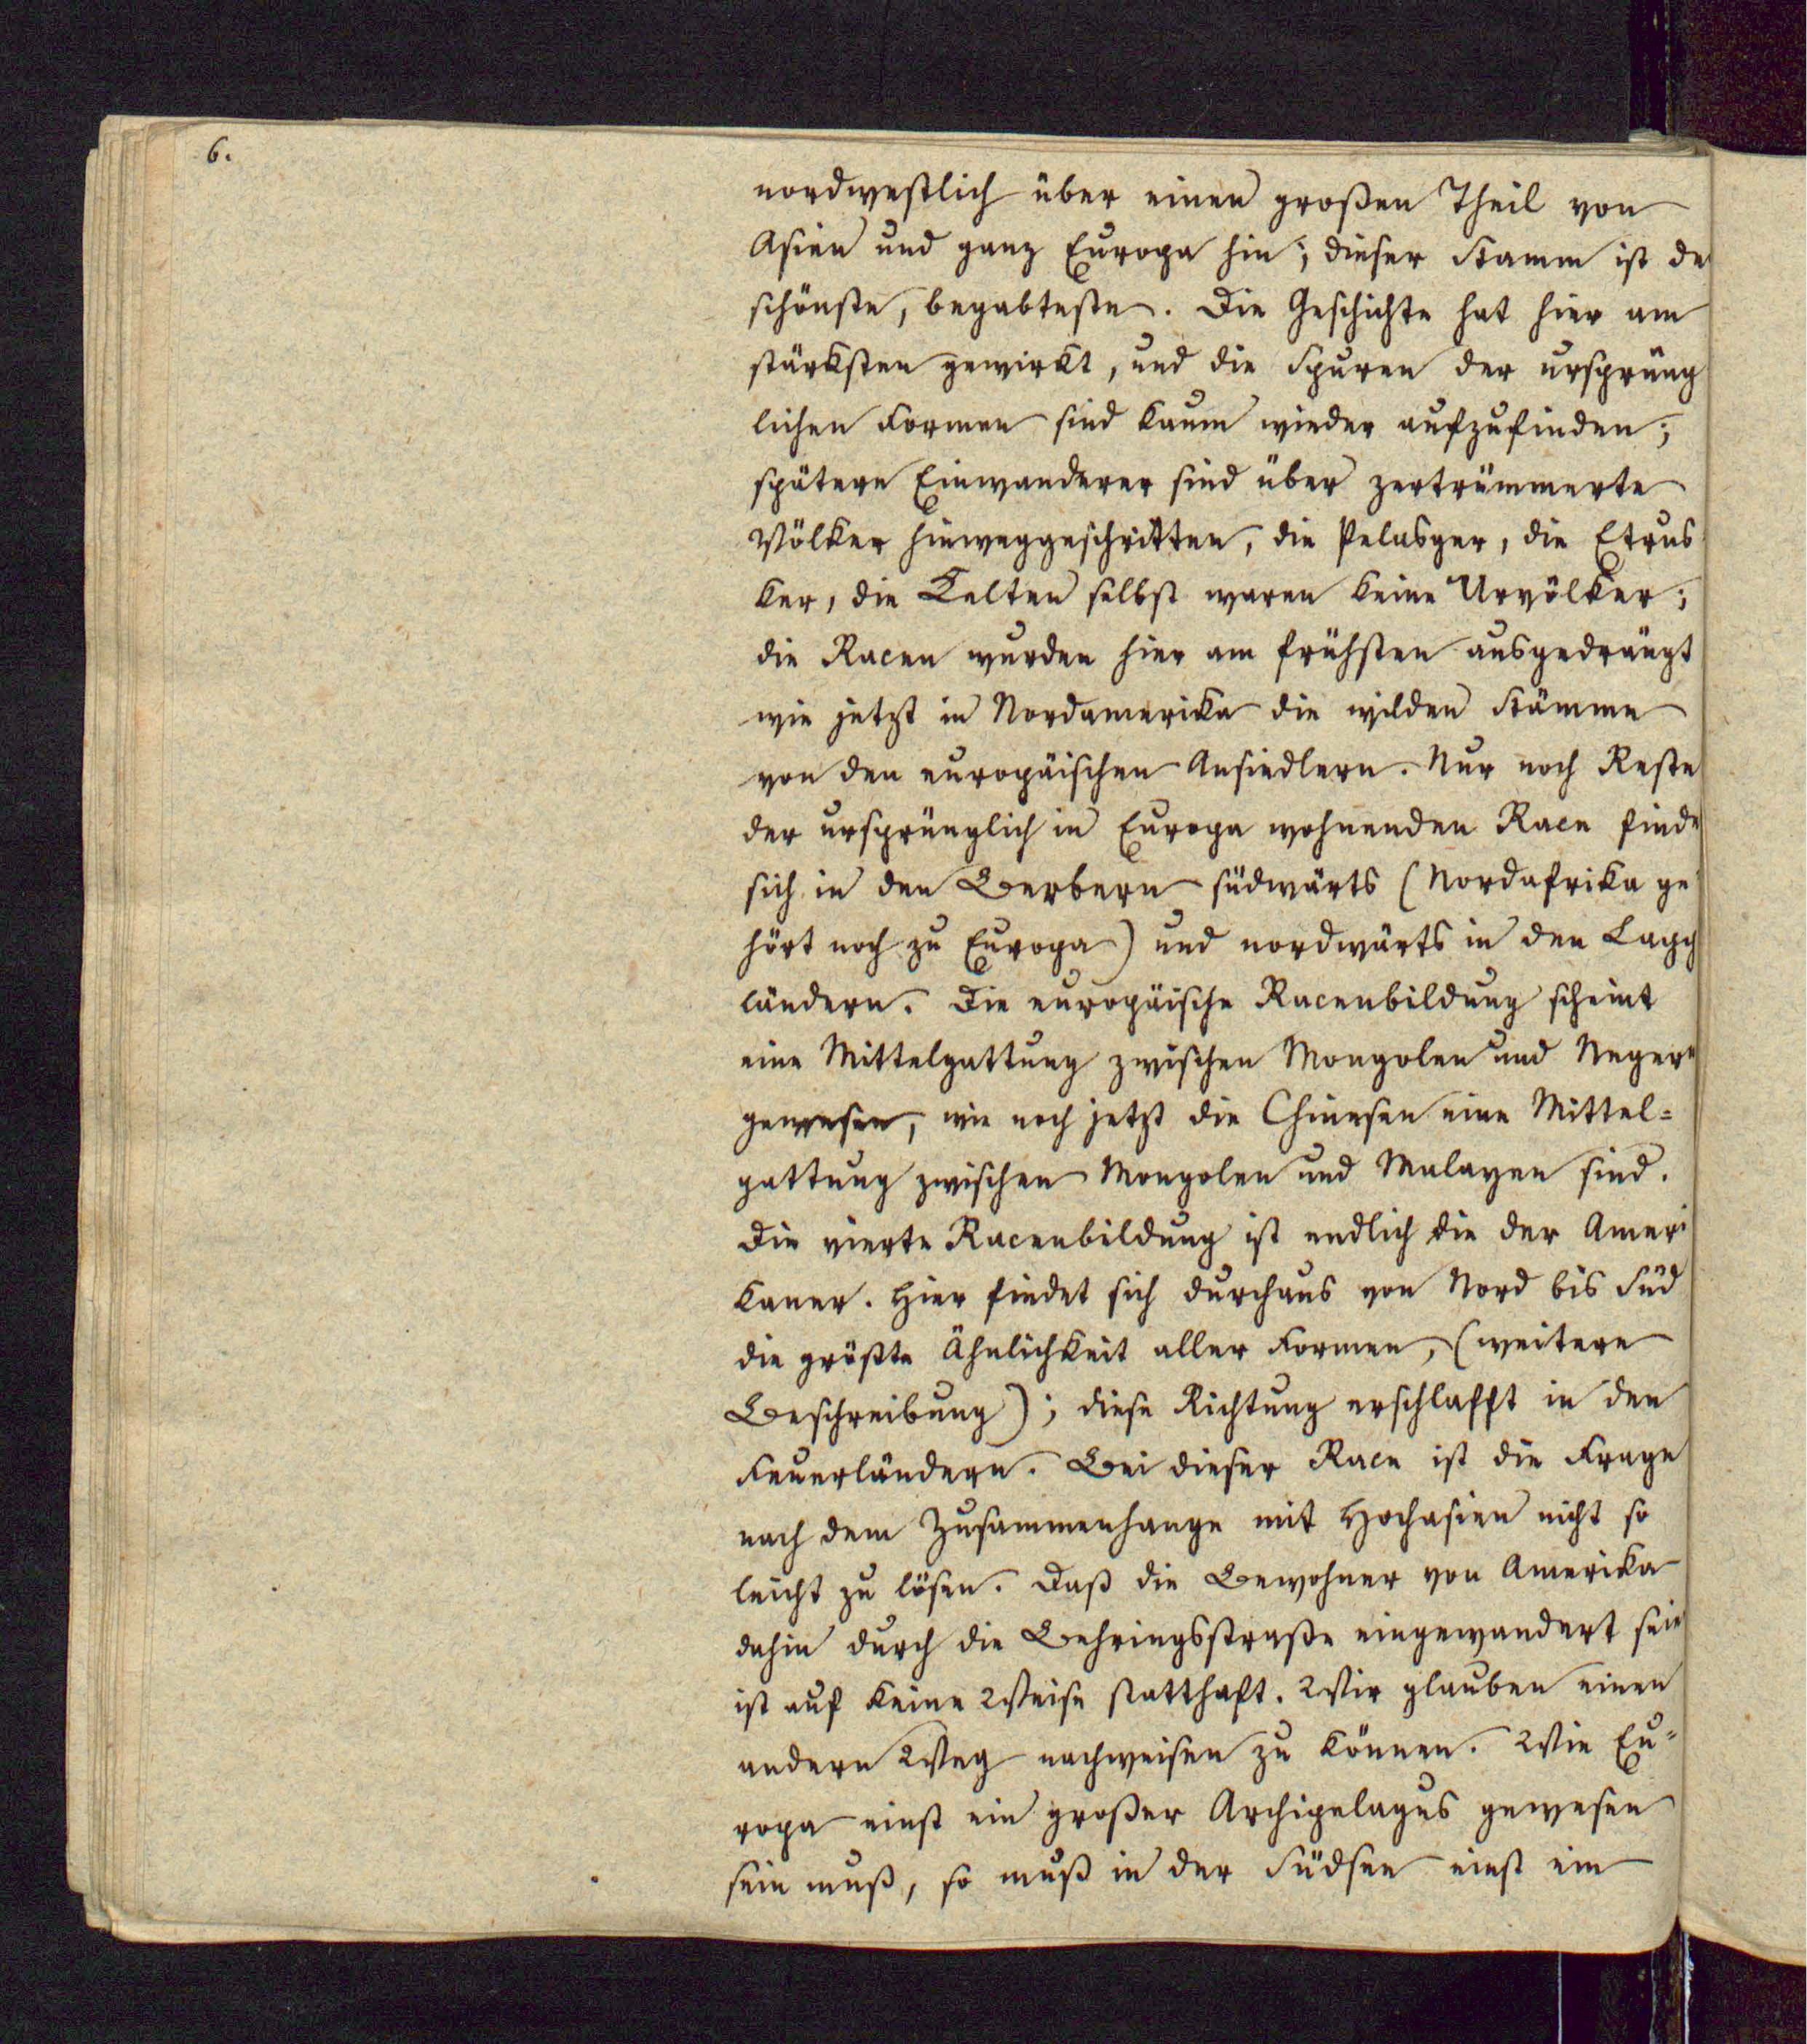 6.
nordwestlich über einen großen Theil von
Asien und ganz Europa hin; dieser Stamm ist de
schönste, begabteste. Die Geschichte hat hier am
stärksten gewirkt, und die Spuren der ursprüng
lichen Formen sind kaum wieder aufzufinden;
spätere Einwanderer sind über zertrümmerte
Völker hinweggeschritten, die Pelasger, die Etrus
ker, die Kelten selbst waren keine Urvölker;
die Racen wurden hier am frühsten ausgedrängt
wie jetzt in Nordamerika die wilden Stämme
von den europäischen Ansiedlern. Nur noch Reste
der ursprünglich in Europa wohnenden Race finde
sich in den Berbern südwärts (Nordafrika ge
hört noch zu Europa) und nordwärts in den Lapp
ländern. Die europäische Racenbildung scheint
eine Mittelgattung zwischen Mongolen und Negern
gewesen, wie noch jetzt die Chinesen eine Mittel=
gattung zwischen Mongolen und Malayen sind.
Die vierte Racenbildung ist endlich die der Ameri
kaner. Hier findet sich durchaus von Nord bis Süd
die größte Ähnlichkeit aller Formen, (weitere
Beschreibung); diese Richtung erschlafft in den
Feuerländern. Bei dieser Race ist die Frage
nach dem Zusammenhange mit Hochasien nicht so
leicht zu lösen. Daß die Bewohner von Amerika
dahin durch die Behringsstraße eingewandert sein
ist auf keine Weise statthaft. Wir glauben einen
andern Weg nachweisen zu können. Wie Eu=
ropa einst ein großer Archipelagus gewesen
sein muß, so muß in der Südsee einst ein